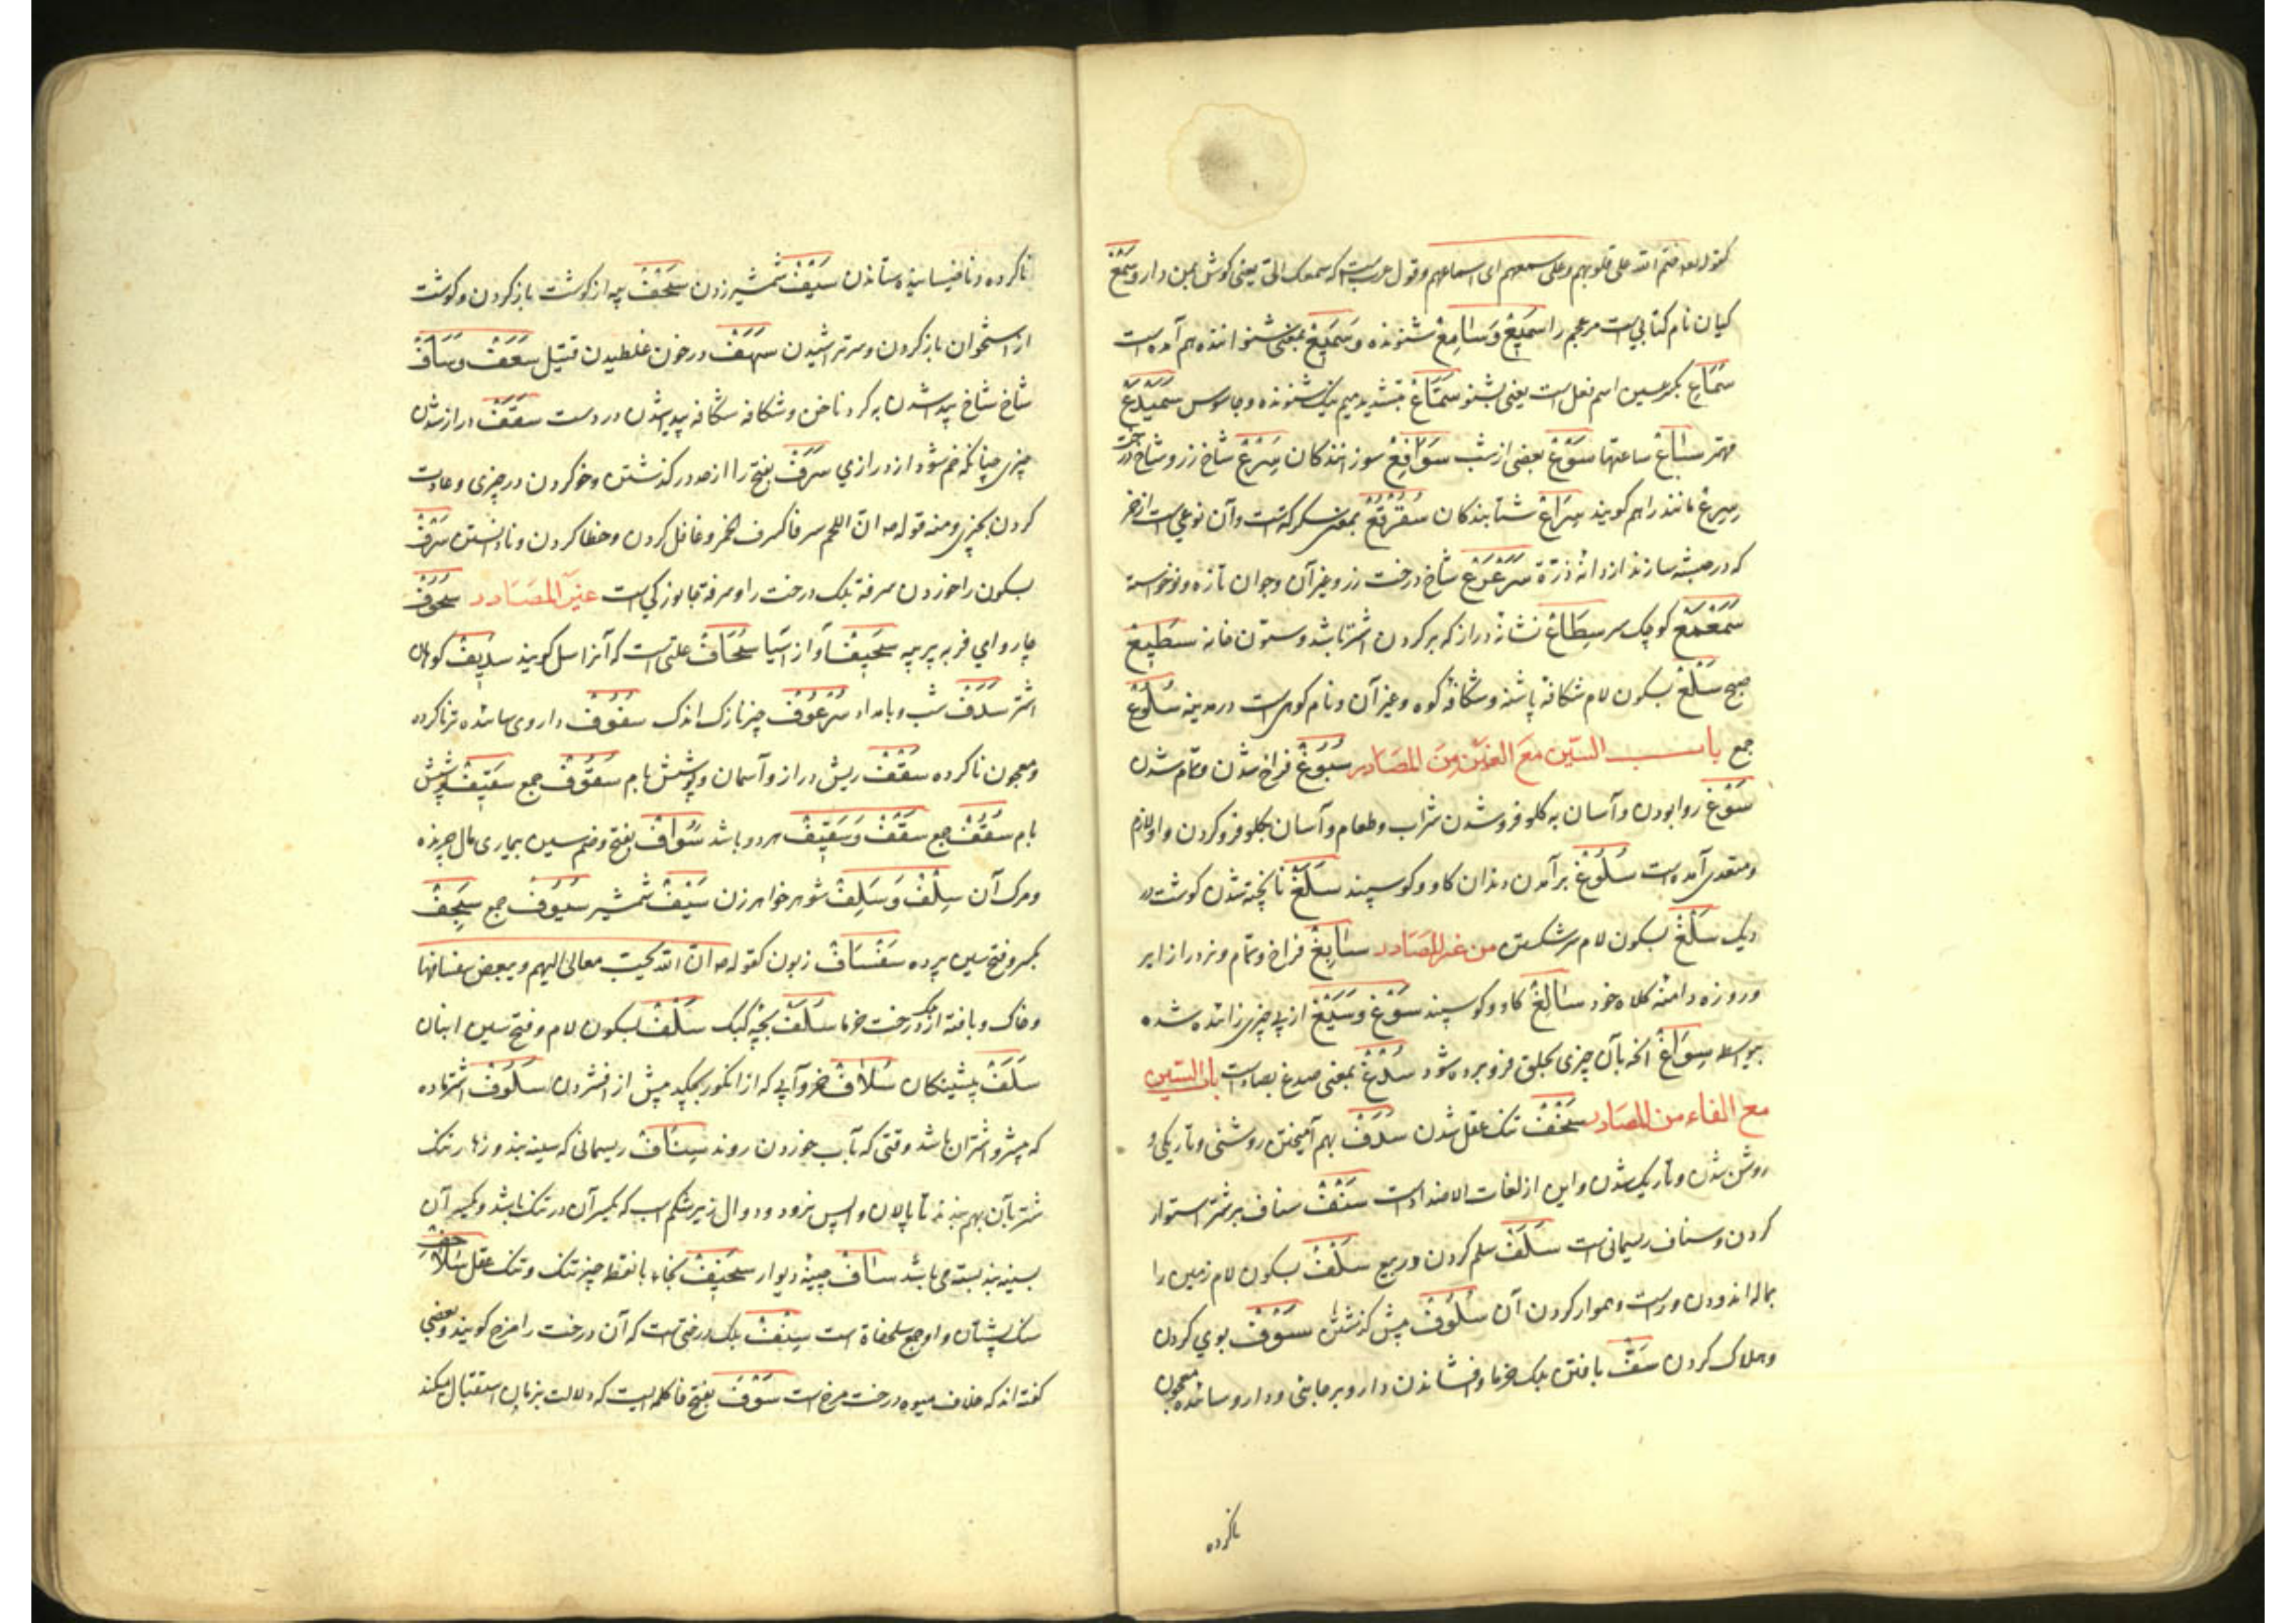 کقوله تعالی ختم الله علی قلوبهم وعلی سمعهم ای اسماعهم وقول عرب است که سمعک الیّ یعنی کوش بمن دار وسَمْعُ
کیان نام کتابی است مر عجم را سَمِیعْ وَسَامِعْ شنونده وَسَمِیعْ بمعنی شنواننده هم آمده است
سَمَاعِ بکسر عین اسم فعل است یعنی بشنو سَمَّاعْ بتشدید میم نیک شنونده وجاسوس سَمَیْدَعْ
مهتر سَاعْ ساعتها سَوْعْ بعضی از شب سَوَافِعْ سوزانندکان سَرْعْ شاخ زر وشاخ درخت
که سِرَاعْ شتابندکان سُقُرْقُعْ بمعنی سکرکه است وآن نوعی است از خمر
که در حبشه سازند از دانهٔ ذرّة سَرَعْرَعْ شاخ درخت زر وغیر آن وجوان تازه ونوخواسته
سَمَعْمَعْ کوچک سر سِطَاعْ نشانهٔ دراز که بر کردن اشتر باشد وستون خانه سَطِیعْ
صبح سَلْعْ بسکون لام شکافهٔ پاشنه وشکافهٔ کوه وغیر آن ونام کوهی است در مدینه سُلُوعْ
جمع باب السّین مَعَ الغَیْن مِنَ المَصَادِر سُبُوغْ فراخ شدن وتمام شدن
سَوْغْ روا بودن وآسان به کلو فرو شدن شراب وطعام وآسان بکلو فرو کردن واو لازم
ومتعدی آمده است سُلُوغْ بر آمدن دندان کاو وکوسپند سَلَغْ ناپخته شدن کوشت در
دیک سَلْغْ بسکون لام سر شکستن من غیر المَصَادر سَابِغْ فراخ وتمام
دامنهٔ کلاه خود سَالِغْ کاو وکوسپند سَوْغْ وَسَیْغْ از پی چیزی زائیده شده
بیواسطه سِوَاغْ آنچه بآن چیزی بحلق فرو برده شود سُدْغْ بمعنی صدغ بصاد است باب السّین
مع الفاء من المصادر سُخْفْ تنک عقل شدن سَدَفْ بهم آمیختن روشنی وتاریکی و
روشن شدن وتاریک شدن واین از لغات الاضداد است سَنْفْ سناف بر شتر استوار
کردن وسناف ریسمانی است سَلَفْ سلم کردن در بیع سَلْفْ بسکون لام زمین را
بماله اندودن وراست وهموار کردن آن سُلُوفْ پیش کذشتن سَوْفْ بوی کردن
وهلاک کردن سَفّْ بافتن برک خرما وافشاندن دارو بر جایی ودارو سائیده معجون
ناکرده
ناکرده ونا خیسانیده ستاندن سَیْفْ شمشیر زدن سَحْفْ پیه از کوشت باز کردن وکوشت
از استخوان باز کردن وسر تراشیدن سَهَفْ در خون غلطیدن قتیل سَعَفْ وَسَأَفْ
شاخ شاخ پیدا شدن به کرد ناخن وشکافه شکافه پدید شدن در دست سَقَفْ دراز شدن
چیزی چنانکه خم شود از درازی سَرَفْ بفتح را از حد در کذشتن وخو کردن در چیزی وعادت
کردن بچیزی ومنه قوله ان اللحم سرفا کسرف الخمر وغافل کردن وخطا کردن ونادانستن سَرْفْ
بسکون را خوردن سرفه برک درخت را وسرفه جانورکی است غیر المَصَادر سَحُوفْ
چاروای فربه پر پیه سَحِیفْ آواز آسیا سُحَافْ علتی است که آنرا سل کویند سَدِیفْ کوهان
اشتر سَدَفْ شب وبامداد سُرْعُوفْ چیز نازک اندک سَفُوفْ داروی سائیده تر ناکرده
ومعجون ناکرده سَقْفْ ریش دراز وآسمان وپوشش بام سُقُوفْ جمع سَقِیفْ پوشش
بام سُقُفْ جمع سَقْفْ وَسَقِیفْ هر دو باشد سَوَافْ بفتح وضم سین بیماری مال چرنده
ومرک آن سِلْفْ وَسَلِفْ شوهر خواهر زن سَیْفْ شمشیر سُیُوفْ جمع سِجْفْ
بکسر وفتح سین پرده سَفْسَافْ زبون کقوله ان الله یحب معالی الهمم ویبغض سفسافها
وخاک وبافته از برک درخت خرما سُلَفْ بچهٔ کبک سَلْفْ بسکون لام وفتح سین انبان
سَلَفْ پیشینکان سُلَافْ خمر وآبی که از انکور بچکد پیش از افشردن سَلُوفْ اشتر ماده
که پیشرو اشتران باشد وقتی که بآب خوردن روند سِنَافْ ریسمانی که سینه بند وزهار تنک
شتر بآن بهم بندند تا پالان واپس نرود ودوال زیر شکم اسب که یکسر آن در تنک باشد ویکسر آن
بسینه بند بسته می باشد سَافْ چینهٔ دیوار سَخِیفْ بخاء با نقطه چیز تنک وتنک عقل سَلَاحِفْ
سنک پشتان واو جمع سلحفاة است سِنْفْ برک درختی است که آن درخت را مرخ کویند وبعضی
کفته اند که غلاف میوه درخت مرخ است سَوْفَ بفتح فا کلمه ایست که دلالت بزمان استقبال میکند